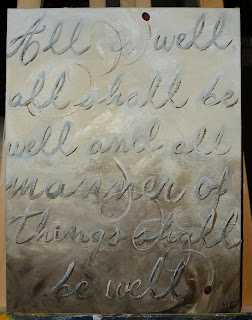 All is well
all shall be
well and all
manner of
things shall
be well